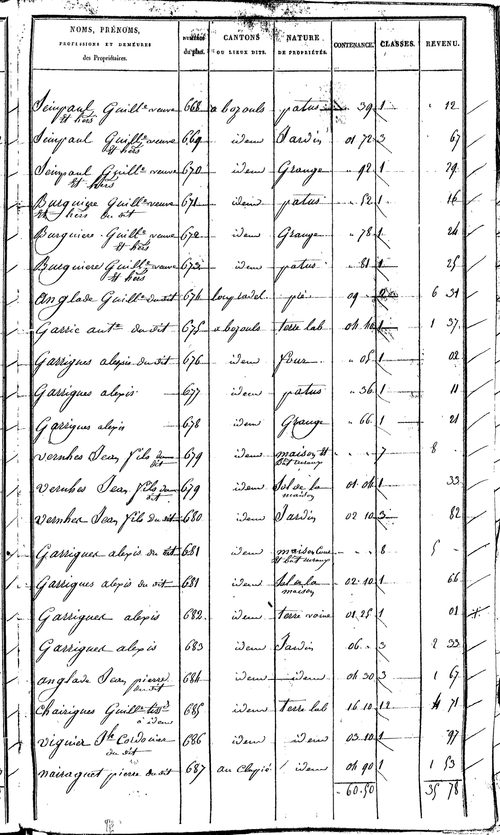 NOMS, PRÉNOMS, PROFESSIONS ET DEMEURES des Propriétaires. NUMÉROS du plan. CANTONS OU LIEUX DITS. NATURE DE PROPRIÉTÉS. CONTENANCE. CLASSES. REVENU.
Guill.e veuve et hers 668 a bozouls patus 39 1 12
Guill.e veuve et hers 669 idem Jardin 01 72 3 67
Guill.e veuve et hers 670 idem Grange 92 1 29
Burguiere Guill.e veuve et hers du dit 671 idem patus 52 1 16
Burguiere Guill.e veuve et hers 672 idem Grange 78 1 24
Burguiere Guill.e veuve et hers 673 idem patus 81 1 25
anglade Guill.e du dit 674 pré 09 6 31
Garric ant.e du dit 675 a bozouls terre lab 04 1 1 37
Garrigues alexis du dit 676 idem four 05 1 02
Garrigues alexis 677 idem patus 36 1 11
Garrigues alexis 678 idem Grange 66 1 21
vernhes Jean fils du dit 679 idem maison et bat ruraux 7 8
vernhes Jean fils du dit 679 idem Sol de la maison 01 04 1 33
vernhes Jean fils du dit 680 idem Jardin 02 10 3 82
Garrigues alexis du dit 681 idem maison et bat ruraux 8 5
Garrigues alexis du dit 681 idem Sol de la maison 02 10 1 66
Garrigues alexis 682 idem terre vaine 01 25 1 01
Garrigues alexis 683 idem Jardin 06 3 2 33
anglade Jean pierre du dit 684 idem idem 04 30 3 1 67
chairigues Guill.e à idem 685 idem terre lab 16 10 2 4 71
viguier Cordonier du dit 686 idem idem 03 10 1 97
nairaguet pierre du dit 687 au idem 04 90 1 1 53
60.50 35 78